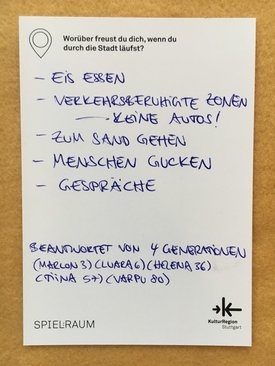 Worüber freust du dich, wenn du
durch die Stadt läufst?
- EIS ESSEN
- VERKEHRSBERUHIGTE ZONEN
KEINE AUTOS!
- ZUM SAND GEHEN
- MENSCHEN GUCKEN
- GESPRÄCHE
BEANTWORTET VON 4 GENERATIONEN
(MARLON 3) (LUARA 6) (HELENA 36)
(TIINA 57) (VARPU 80)
SPIEL:RAUM
KulturRegion
Stuttgart